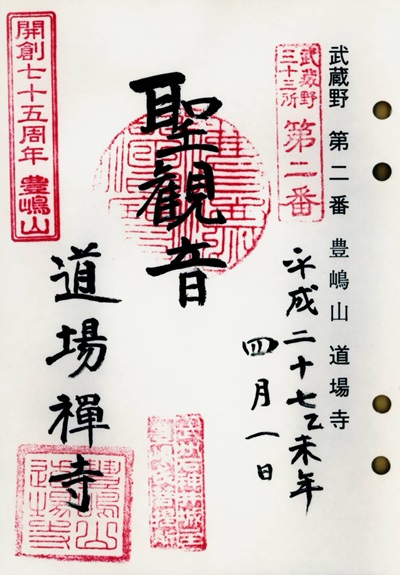 武蔵野 第二番 豊嶋山 道場寺
武蔵野
三十三所
第二番
平成二十七乙未年
四月一日
聖觀音
開創七十五周年 豊嶋山
道場禪寺
豊嶋山
道場寺